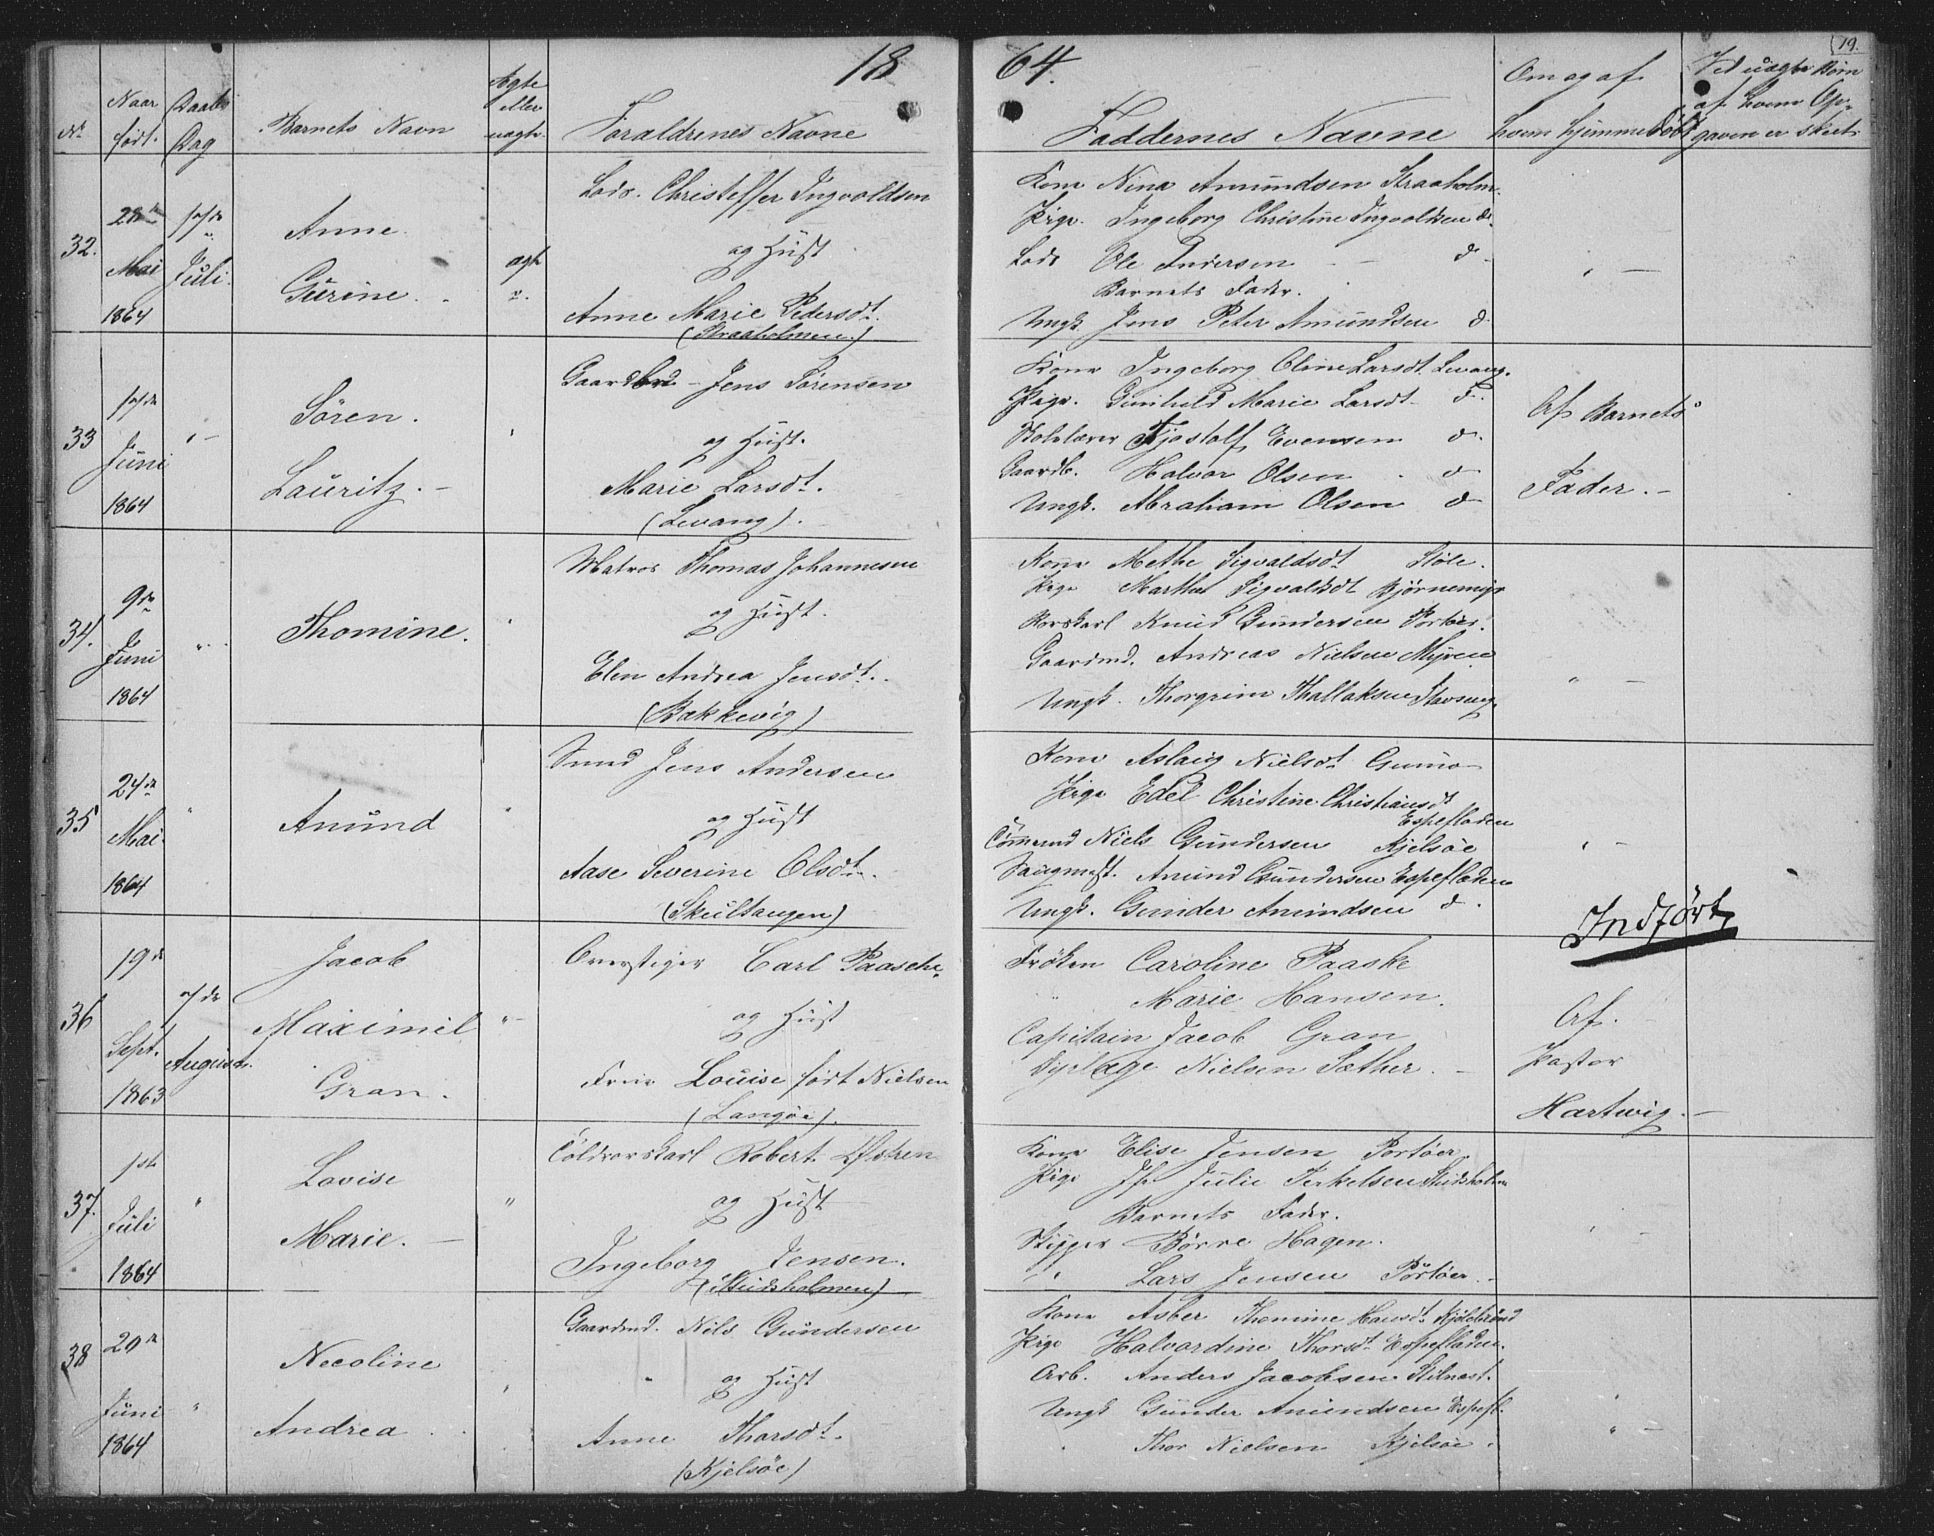 1864.
19.
No
Naar født.
Daabs Dag
Barnets Navn
Ægte eller uægte.
Foraldrenes Navne
Faddernes Navne
Om og af hvem hjemmedøbt
Ved uægte Børn af hvem Opgaven er skeet
32.
Mai
1864
Juli.
Anne
Gurine.
ægte
Lods. Christoffer Ingvoldsen
og Hust
Anne Marie Pedersdt.
(Straaholmen)
Kone Nina Amundsen Straaholm.
Pige. Ingeborg Christine Ingvoldsen d.
Lods Ole Andersen d
Barnets Fader.
Ungk Jens Peter Amundsen d.
33
Juni
1864
Søren.
Lauritz.
Jens Sørensen
og Hust.
Marie Larsdt.
(Levang).
Kone Ingeborg Oline Larsdt Levang.
Pige. Gunhild Marie Larsdt d.
Tjostolf Evensen d.
Gaardb. Halvor Olsen d
Ungk. Abraham Olsen d
Af Barnets
Fader.
34.
9de
Juni
1864
Thomine.
Matros Thomas Johannesen
og Hust.
Elen Andrea Jensdt.
(Bakkevig)
Kone Methe Sigvaldsdt Støle.
Pige Marthe Sigvaldsdt Bjørnemyr
Knud Gundersen Portøer.
Gaardmd. Andreas Nielsen Myren
Ungk. Thorgrim Thallaksen Stavseng
35
24de
Mai
1864
Anund
Smed Jens Andersen
og Hust
Aase Severine Olsdt.
(Skultangen)
Kone Aslaug Nielsdt Gumø
Pige Edel Christine Christiansdt
Espefladen
Tømmermd Niels Gundersen Kjelsøe
Anund Gundersen Espefladen
Ungk. Gunder Anundsen d.
Indført
36
19de
Sept.
1863
7de
August.
Jacob
Maximil
Gran.
Overstiger Carl Paasche
og Hust
Louise født Nielsen
(Langøe).
Frøken Caroline Paaske
" Marie Hansen.
Capitain Jacob Gran
Nielsen Sæther.
Af.
Pastor
Hartwig.
37.
1ste
Juli
1864
Lovise
Marie.
Toldrorskarl Robert Østren
og Hust
Ingeborg Jensen.
(Skidsholmen)
Kone Elise Jensen Portøer.
Pige Jfr Julie Terkelsen Skidsholm
Barnets Fader.
Skipper Børre Hagen.
" Lars Jensen Portøer.
38
Juni
1864
Necoline
Andrea
Gaardmd. Nils Gundersen
og Hust
Anne Thorsdt.
(Kjelsøe)
Kone Asber Thomine Hansdt Kjølebrønd
Pige Halvardine Thorsdt Espefladen.
Arb. Anders Jacobsen Stilnest.
Ungk Gunder Anundsen Espefl.
Thor Nielsen Kjelsøe.